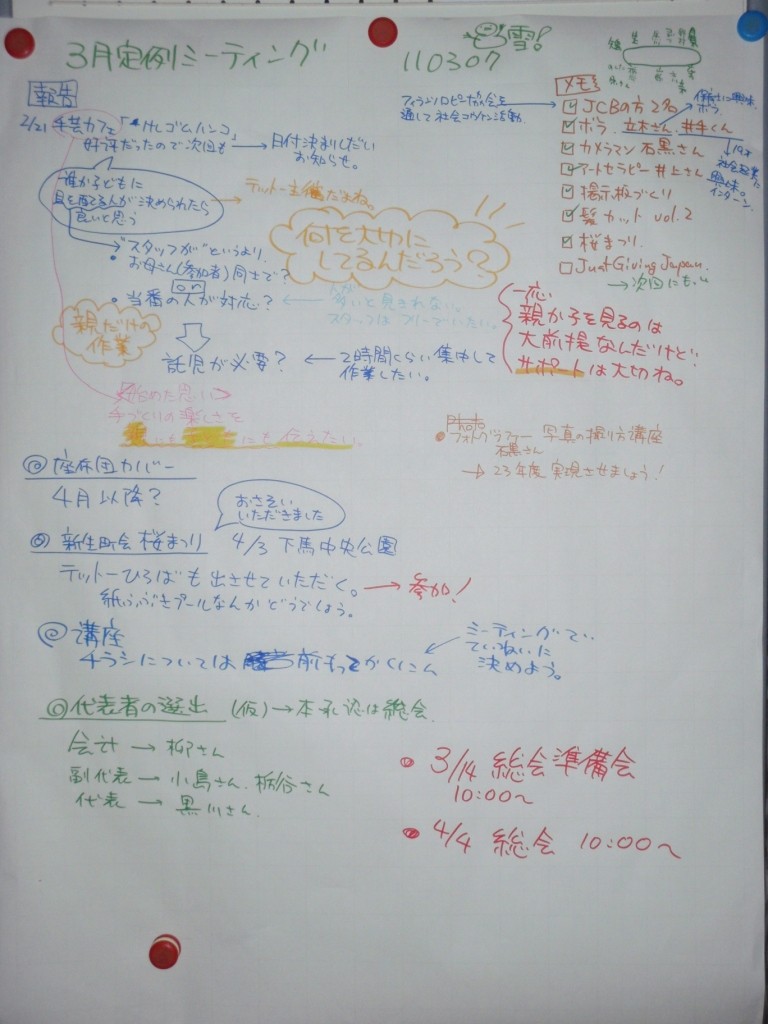 3月定例ミーティング 110307
雪!
報告
2/21 手芸カフェ「・けしゴムハンコ」
好評だったので次回も → 日付決まりしだい
お知らせ。
誰か子どもに
目を配る人が決められたら
良いと思う
テットー主催だよね。
何を大切に
してるんだろう?
・"スタッフが"というより、
・お母さん(参加者)同士で?
or
・当番の人が対応? ←
多いと見きれない。
スタッフは
親だけの
作業
託児が必要? ← 2時間くらい集中して
作業したい。
一応
親が子を見るのは
大前提なんだけど…
サポートは大切ね。
始めた思い
手づくりの楽しさを
にも にも 伝えたい。
フィランソロピー協会を
通して社会コウケン活動
メモ
☑ JCBの方2名
☑ ボラ. 立木さん. 井手くん
☑ カメラマン 石黒さん
☑ アートセラピー 井上さん
☑ 掲示板づくり
☑ 髪カット vol.2
☑ 桜まつり.
□ JustGiving Japan.
→次回にも
ボラ
社会起業
興味。
インターン.
Photo
・フォトグラファー 写真の撮り方講座
石黒さん
→ 23年度 実現させましょう!
◎ 座布団カバー
4月以降?
おさそい
いただきました
◎ 新生町会 桜まつり 4/3 下馬中央公園
テットーひろばも出させていただく。→ 参加!
紙ふぶきプールなんかどうでしょう。
◎ 講座
チラシについては 前もってかくにん
ミーティングで
ていねいに
決めよう。
◎代表者の選出 (仮)→本承認は総会.
会計 → 柳さん
副代表 → 小島さん. 栃谷さん
代表 → 黒川さん.
・3/14 総会準備会
10:00~
・4/4 総会 10:00~